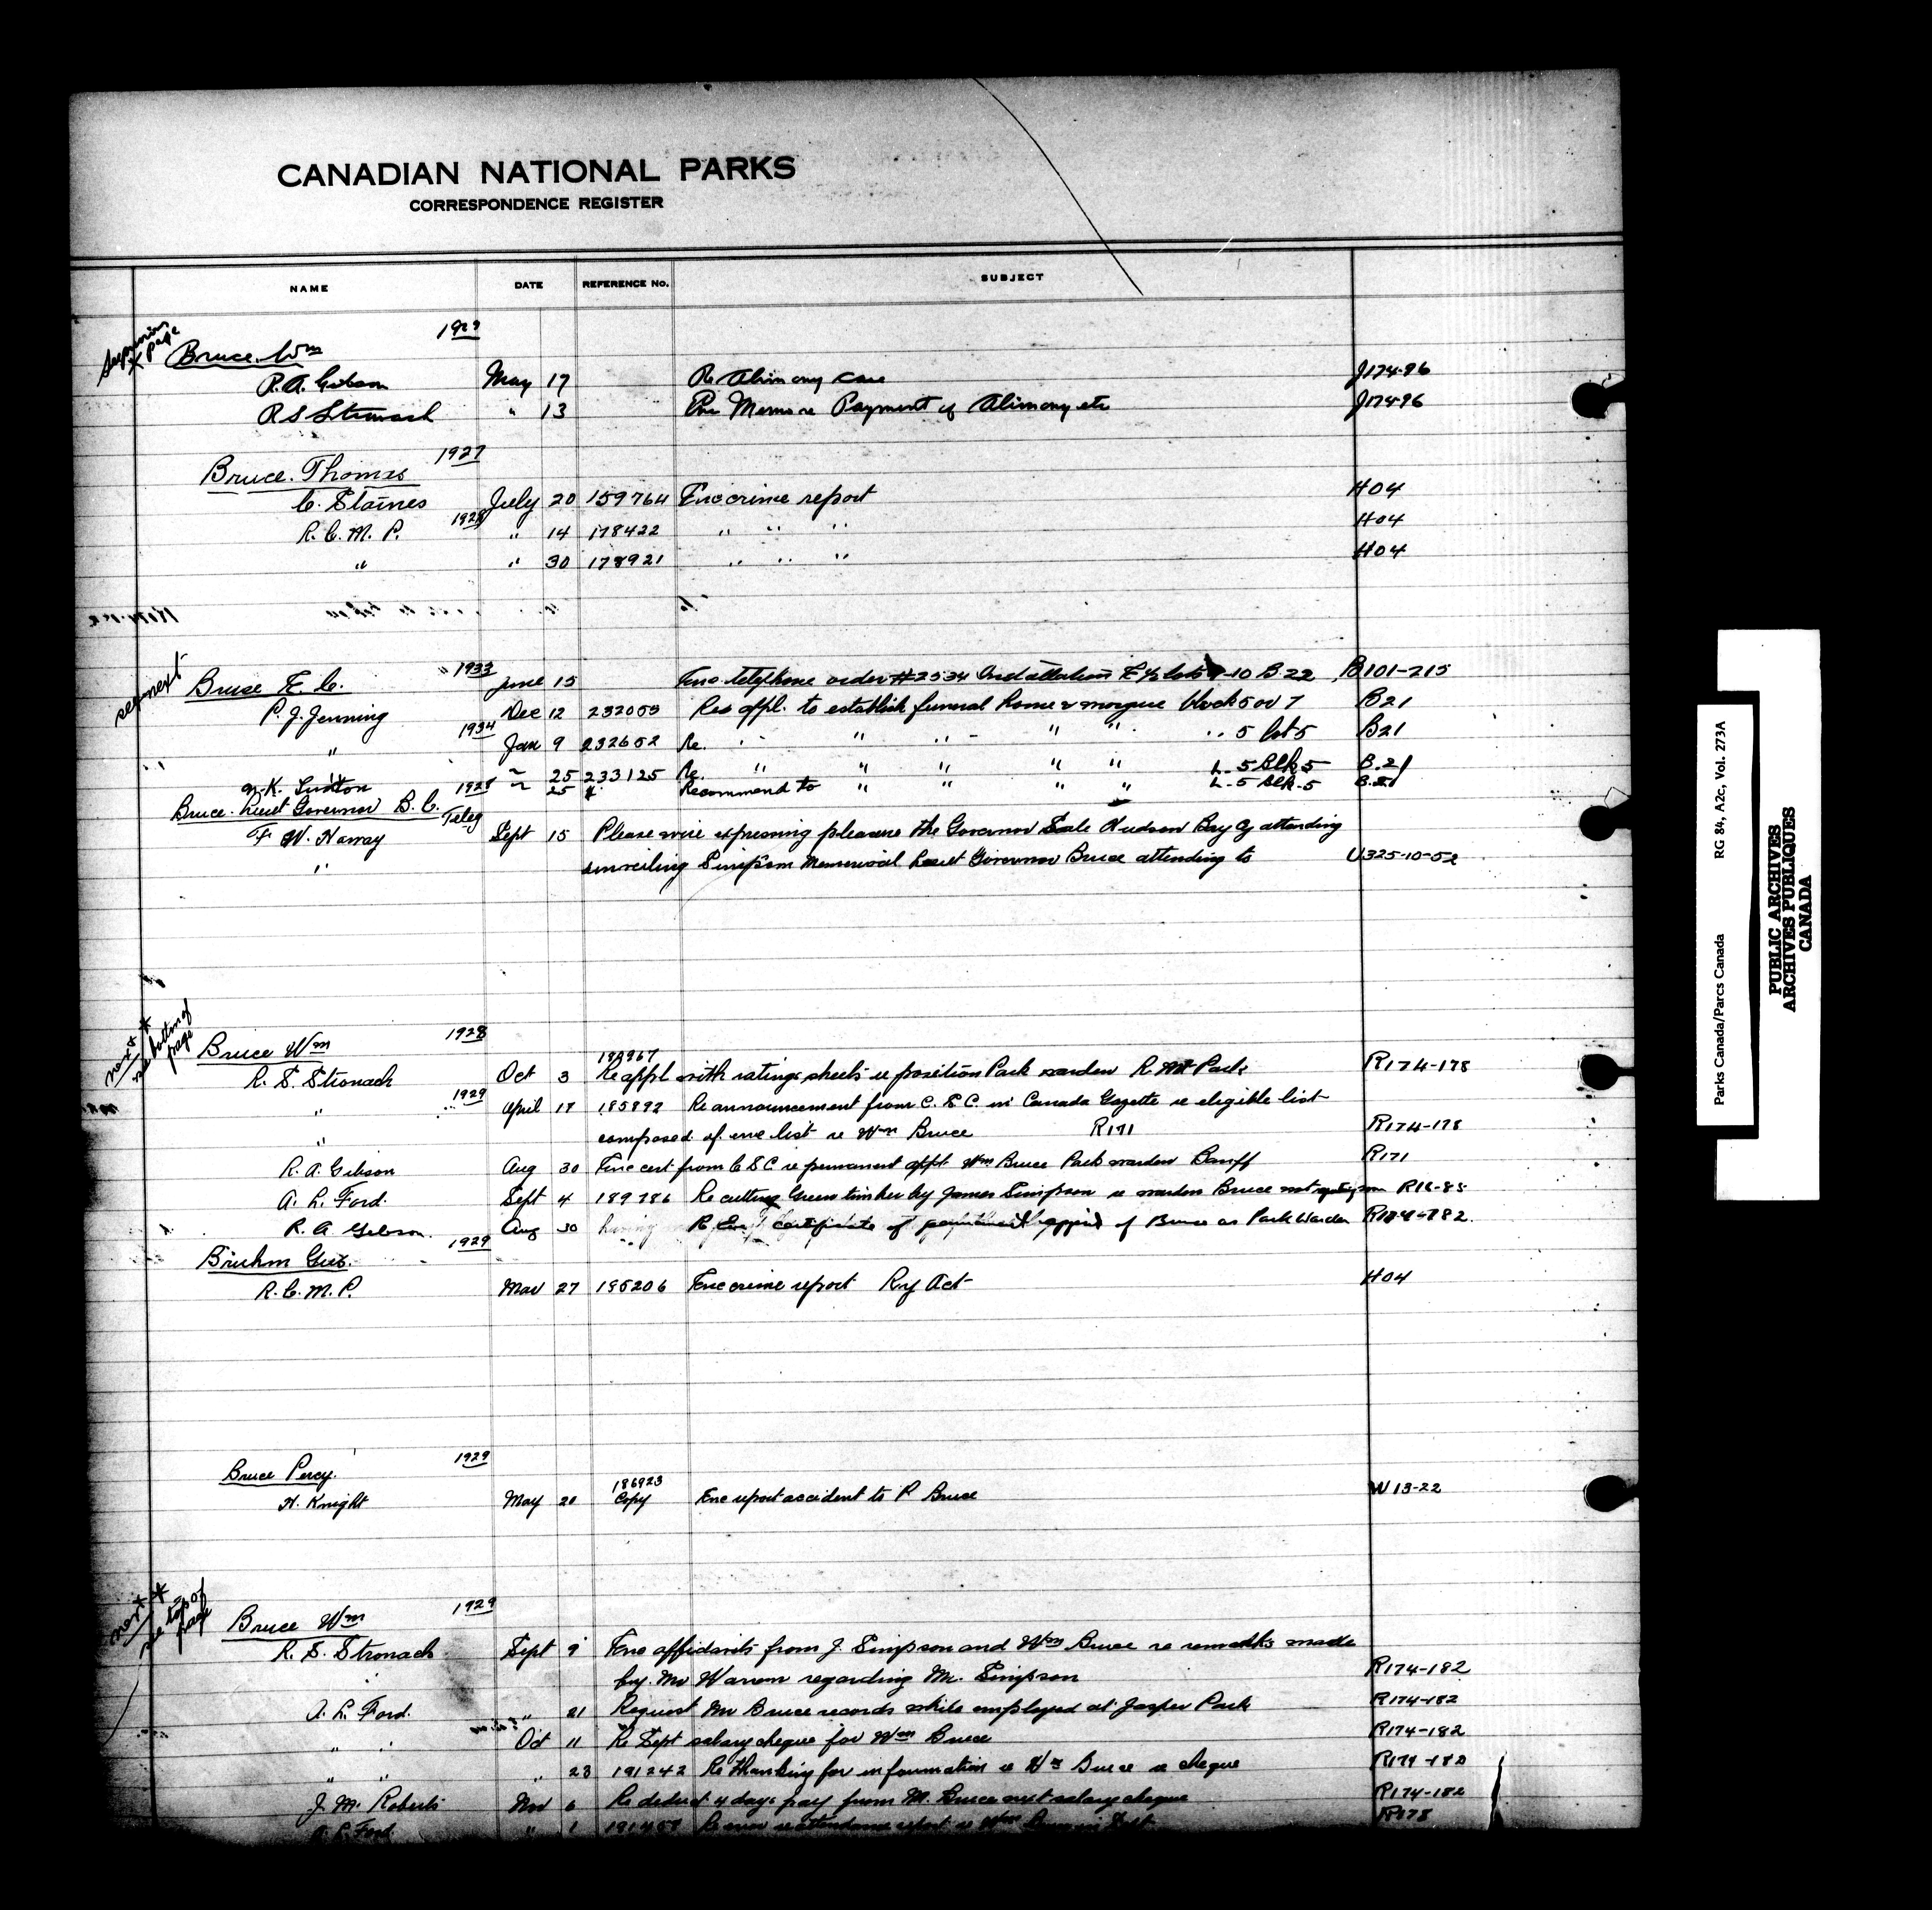 CANADIAN NATIONAL PARKS
CORRESPONDENCE REGISTER
NAME DATE REFERENCE No. SUBJECT
page
Bruce. Wm
R. A. Gibson May 17 Re Alimony case J174-96
" 13 Memo re Payment of Alimony etc J174-96
Bruce. Thomas 1927
C. Staines July 20 159764 Enc crime report H04
R. C. M. P. 1928 " 14 178422 " " " H04
" " 30 178921 " " " H04
see next
Bruce E. C. 1933 June 15 Enc telephone order #2534 Installation 10 B 22 B101-215
P. J. Jenning Dec 12 Res appl. to establish funeral home & morgue block 5 or 7 B21
" 1934 Jan 9 232652 Re. " " " " " 5 lot 5 B21
25 233125 Re. " " " " L-5 Blk 5 B.21
N. K. Luxton 25 Recommend to " " " " L-5 Blk-5 B.21
Bruce. Lieut Governor B. C. 1928 Teleg
F W. Howay Sept 15 Please wire expressing pleasure the Governor Hudson Bay Co attending
" unveiling Simpson Memorial Lieut Governor Bruce attending to U325-10-52
next * see bottom of page
Bruce Wm 1928
R. S. Stronach Oct 3 Re appl with ratings sheets re position Park warden R Mt Park R174-178
" 1929 April 18 185892 Re announcement from C. S. C. in Canada Gazette re eligible list
" composed of one list re Wm Bruce R171 R174-178
R. A. Gibson Aug 30 Enc cert from C S C re permanent appt Wm Bruce Park warden Banff R171
A. L. Ford. Sept 4 189786 Re cutting Green timber by James Simpson re warden Bruce not R16-85
R. A Gibson. Aug 30 Re certificate of of Bruce as Park Warden R174-182.
Bruhm Gus. 1929
R. C. M. P. Mar 27 185206 Enc crime report Ry Act H04
Bruce Percy. 1929
H. Knight May 20 186923 Copy Enc report accident to P Bruce W13-22
next * see top of page
Bruce Wm 1929
R. S. Stronach Sept 9 Enc affidavits from J. Simpson and Wm Bruce re remarks made
by Mr Warren regarding Mr. Simpson R174-182
A. L. Ford. " 21 Request Mr Bruce records while employed at Jasper Park R174-182
" " Oct 11 Re Sept salary cheque for Wm Bruce R174-182
" " " 23 191242 Re thanking for information re Wm Bruce re cheque R174-182
J. M. Roberts Nov 6 Re deduct 4 days pay from M. Bruce next salary cheque R174-182
A. L. Ford. " 1 attendance report re Wm Bruce R178
Parks Canada/Parcs Canada RG 84, A2c, Vol. 273A
PUBLIC ARCHIVES
ARCHIVES PUBLIQUES
CANADA